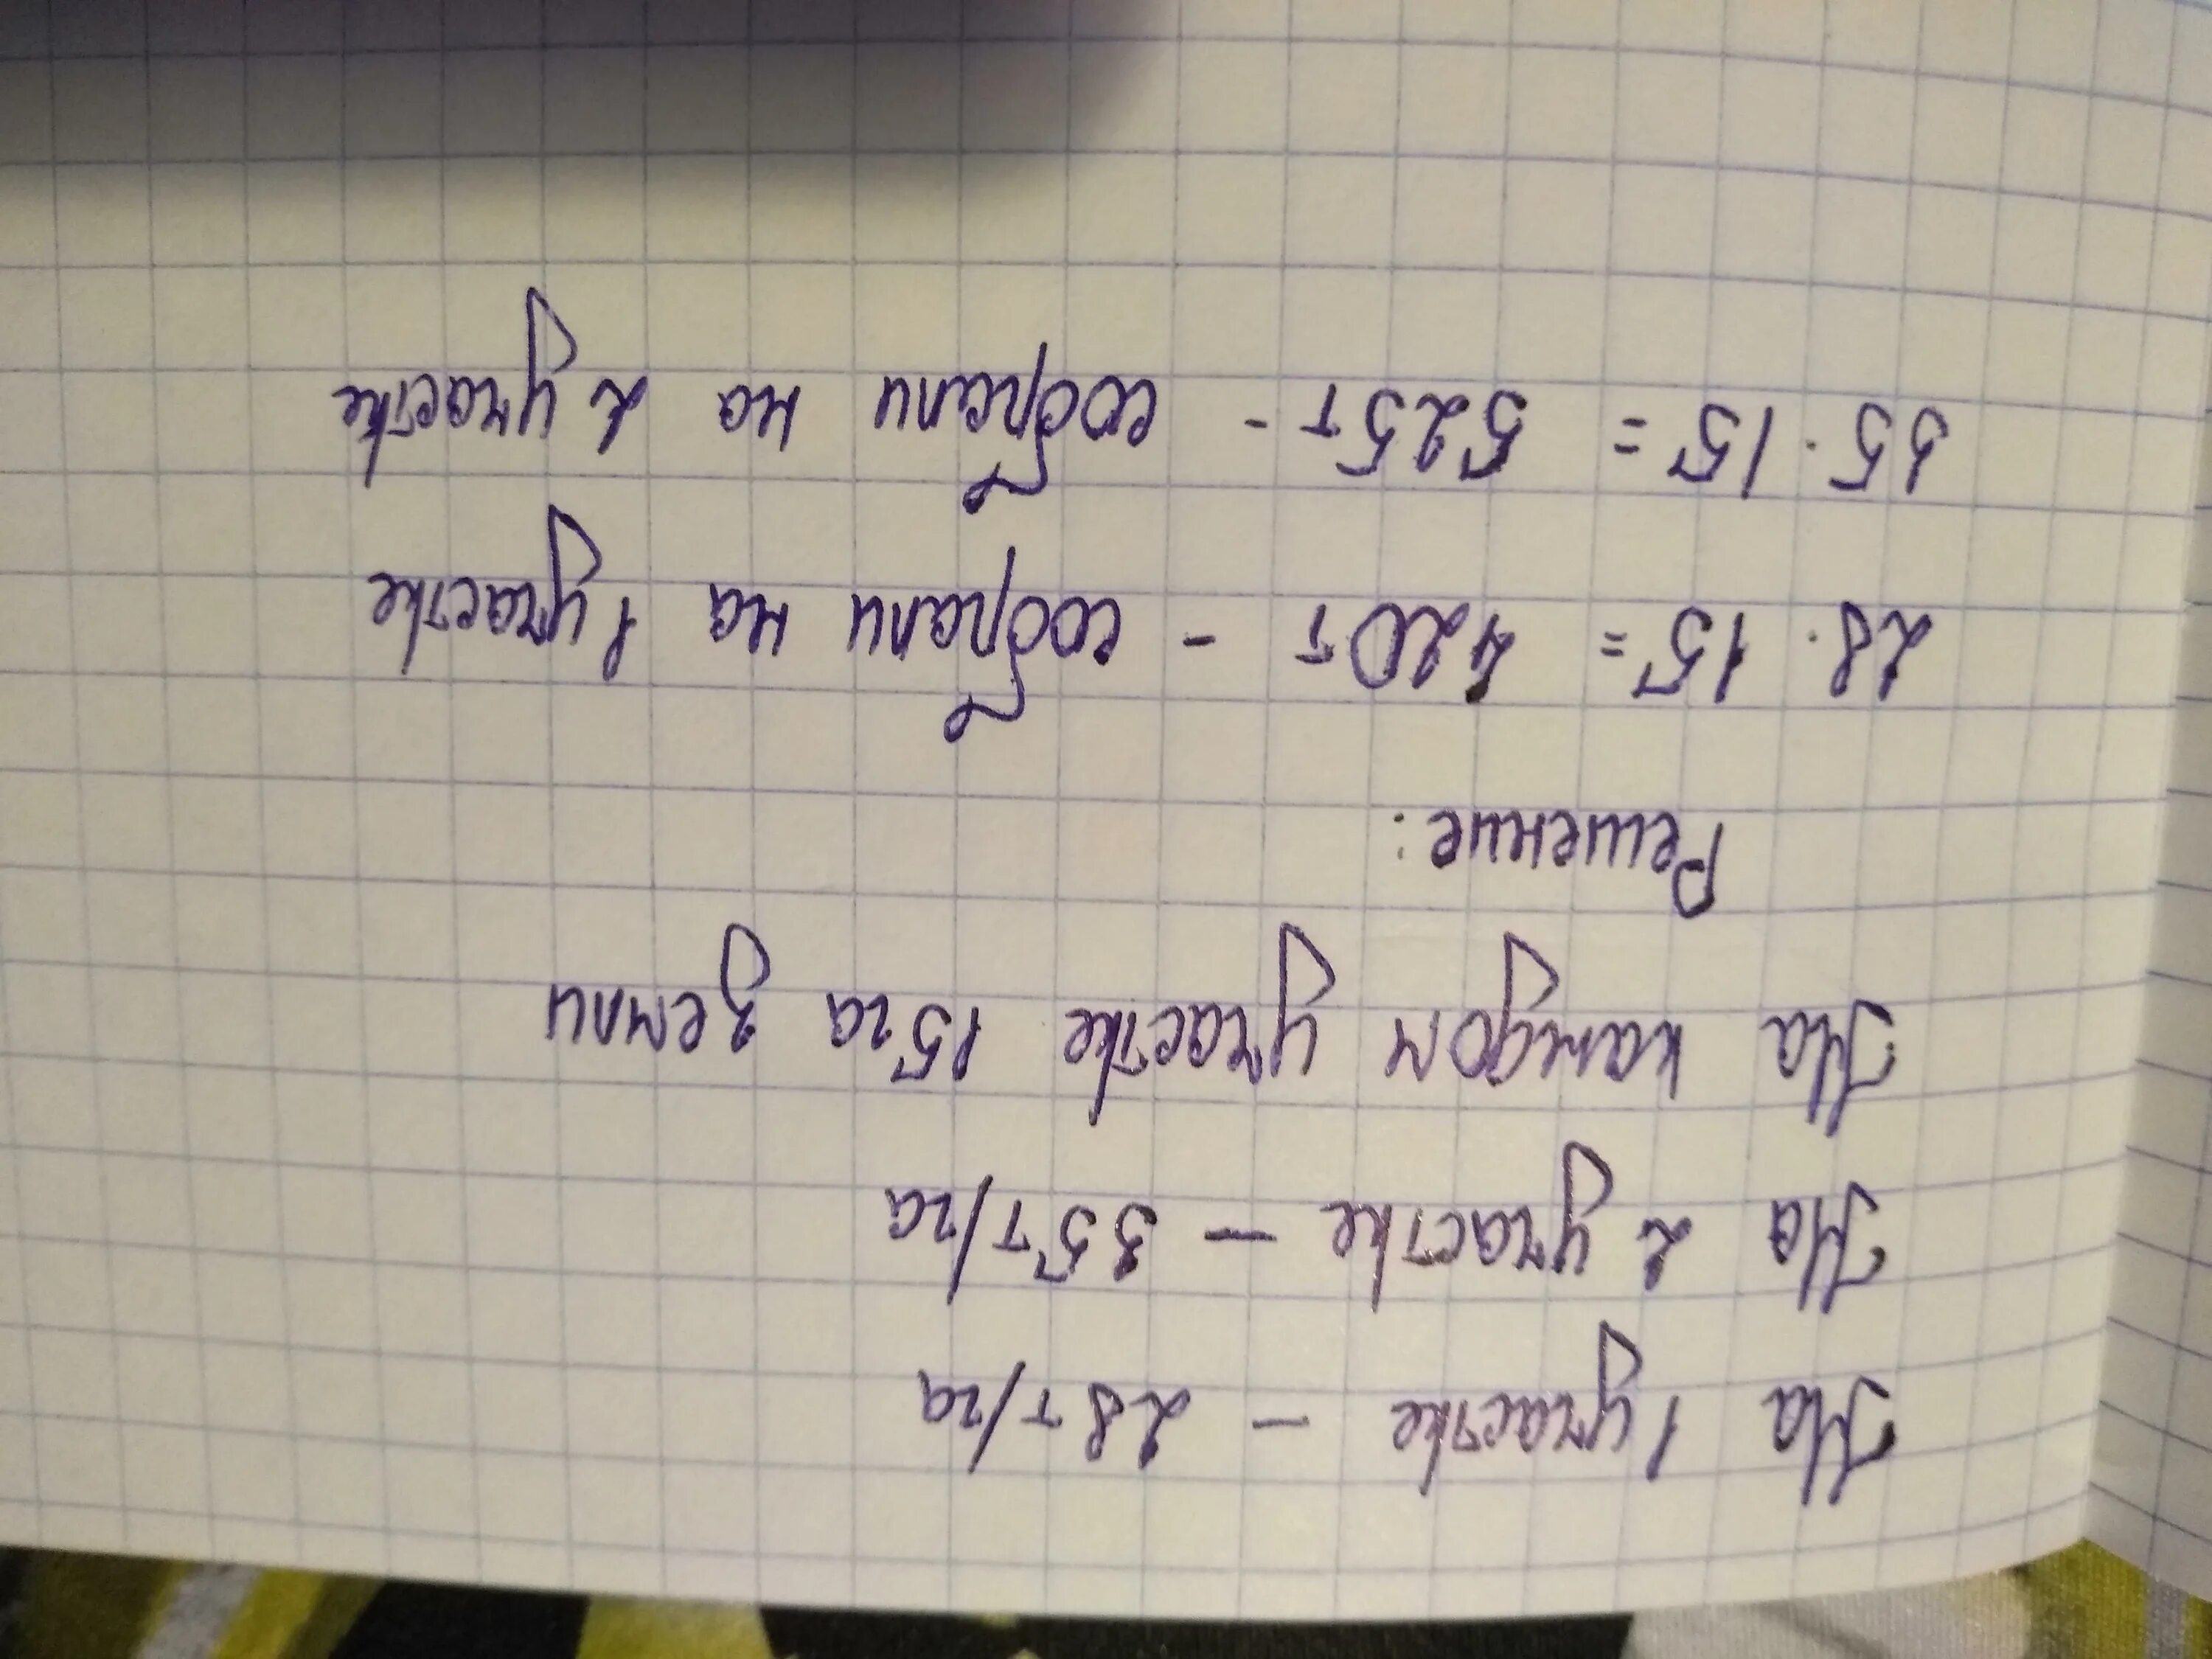 На 1 участке – 28 т/га
На 2 участке – 35 т/га
На каждом участке 15 га земли
Решение:
28 · 15 = 420 т – собрали на 1 участке
35 · 15 = 525 т – собрали на 2 участке